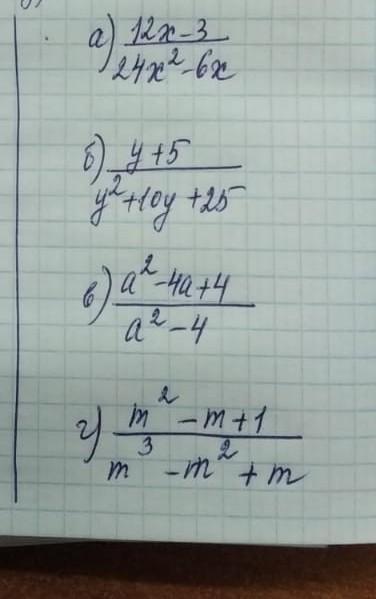 а) 12x-3
24x²-6x
б) y+5
y²+10y+25
в) a²-4a+4
a²-4
г) m²-m+1
m³-m²+m